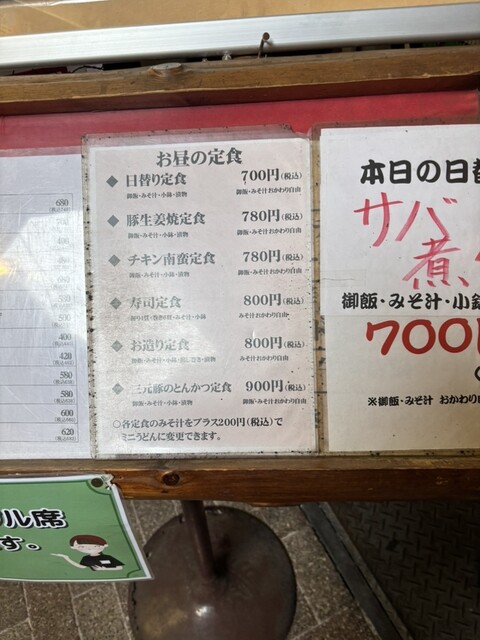 680
500
400
420
580
580
600
620
お昼の定食
◆日替り定食 700円(税込)
御飯・みそ汁・小鉢・漬物 御飯・みそ汁おかわり自由
◆豚生姜焼定食 780円(税込)
御飯・みそ汁・小鉢・漬物 御飯・みそ汁おかわり自由
◆チキン南蛮定食 780円(税込)
御飯・みそ汁・小鉢・漬物 御飯・みそ汁おかわり自由
◆寿司定食 800円(税込)
みそ汁・小鉢 みそ汁おかわり自由
◆お造り定食 800円(税込)
御飯・みそ汁・小鉢・漬物 御飯・みそ汁おかわり自由
◆三元豚のとんかつ定食 900円(税込)
御飯・みそ汁・小鉢・漬物 御飯・みそ汁おかわり自由
○各定食のみそ汁をプラス200円(税込)で
ミニうどんに変更できます。
本日の日替
サバ
煮
御飯・みそ汁・小鉢
700円
※御飯・みそ汁 おかわり自
ル席
す。